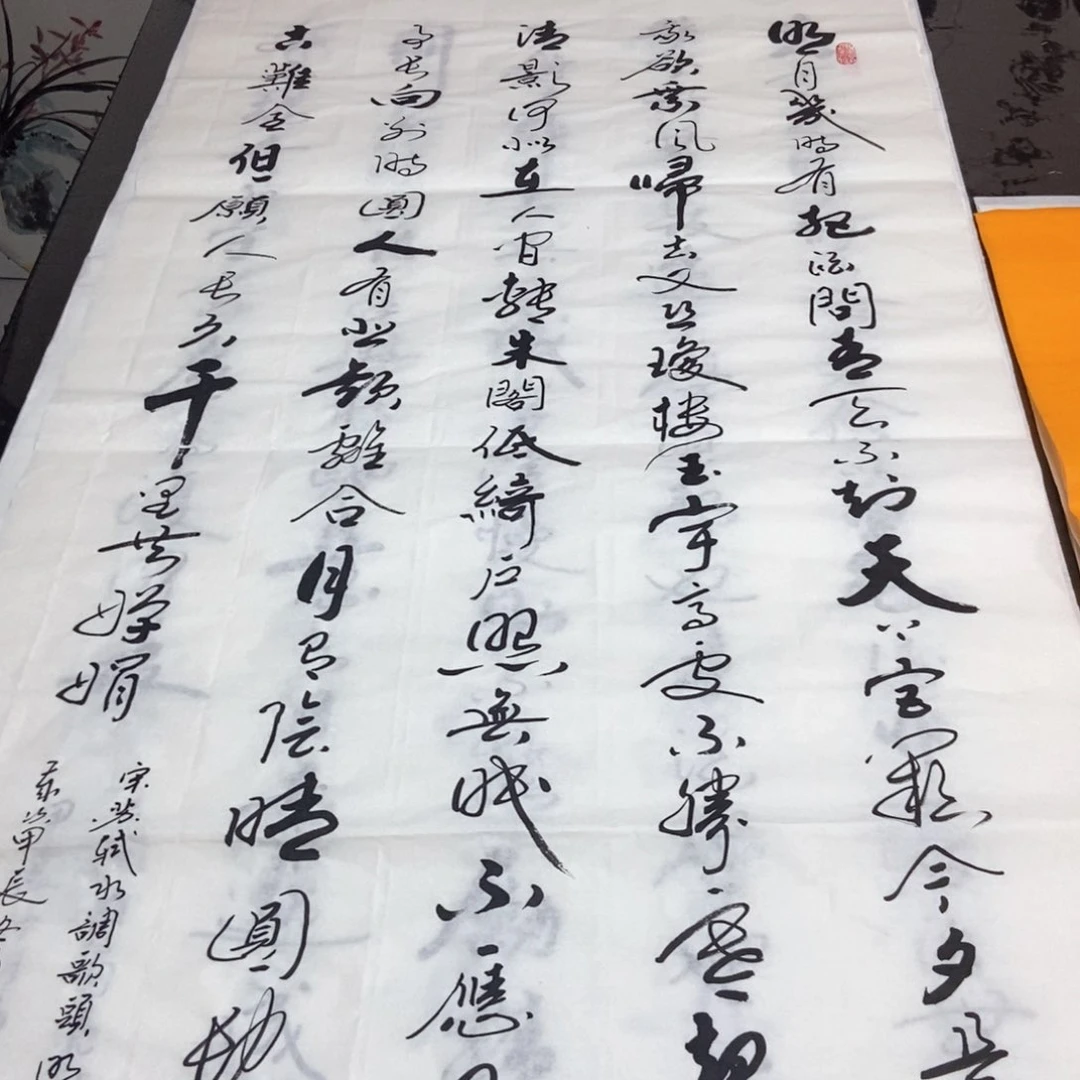 明月幾時有把酒問青天不知天上宮闕今夕是
我欲乘風歸去又恐瓊樓玉宇高處不勝寒起
清影何似在人間轉朱閣低綺戶照無眠不應
事長向別時圓人有悲歡離合月有陰晴圓缺
古難全但願人長久千里共嬋娟
宋蘇軾水調歌頭明
長